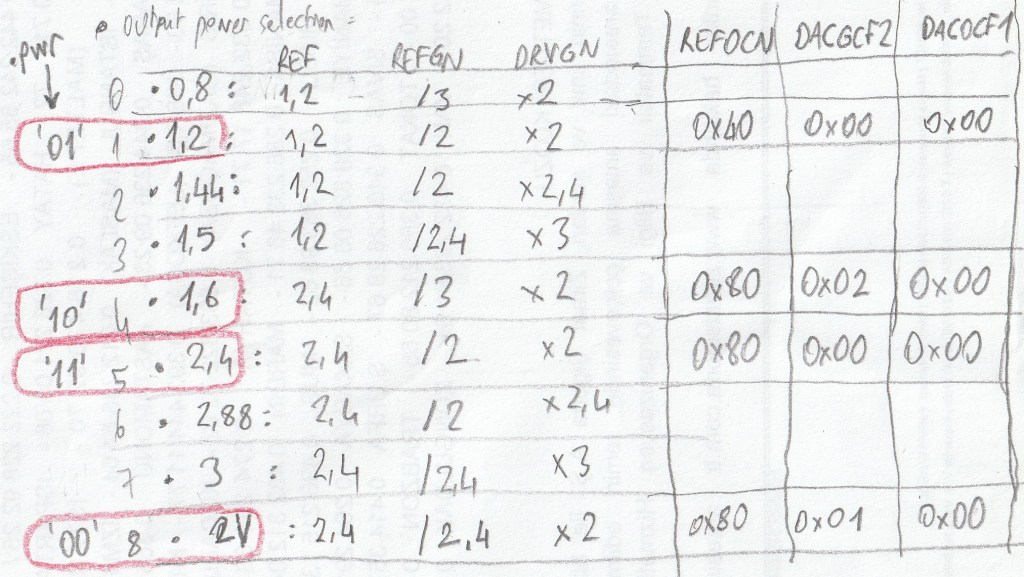 • output power selection:
.pwr REF REFGN DRVGN REFOCN DACGCF2 DAC0CF1
0 • 0,8 : 1,2 /3 x2
'01' 1 • 1,2 : 1,2 /2 x2 0x40 0x00 0x00
2 • 1,44 : 1,2 /2 x2,4
3 • 1,5 : 1,2 /2,4 x3
'10' 4 • 1,6 : 2,4 /3 x2 0x80 0x02 0x00
'11' 5 • 2,4 : 2,4 /2 x2 0x80 0x00 0x00
6 • 2,88 : 2,4 /2 x2,4
7 • 3 : 2,4 /2,4 x3
'00' 8 • 2V : 2,4 /2,4 x2 0x80 0x01 0x00